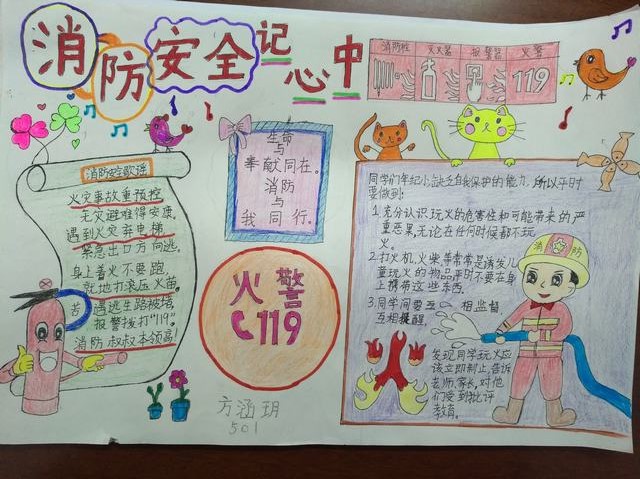 消防安全记心中
消防栓 灭火器 报警器 火警
119
消防安全歌谣
火灾事故重预控
无灾避难得安康。
遇到火灾弃电梯
紧急出口方向逃。
身上着火不要跑,
就地打滚压火苗。
若遇逃生路被堵
报警拨打"119"。
消防叔叔本领高!
生命
与
奉献同在。
消防
与
我同行。
火警
119
方涵玥
501
同学们年纪小,缺乏自我保护的能力,所以平时
要做到:
1.充分认识玩火的危害性和可能带来的严
重恶果,无论在任何时候都不玩
火。
2.打火机、火柴等常常是诱发儿
童玩火的物品平时不要在身
上携带这些东西。
3.同学间要互相监督
互相提醒,
发现同学玩火应
该立即制止,告诉
老师、家长,对他
们受到批评
教育。
消防